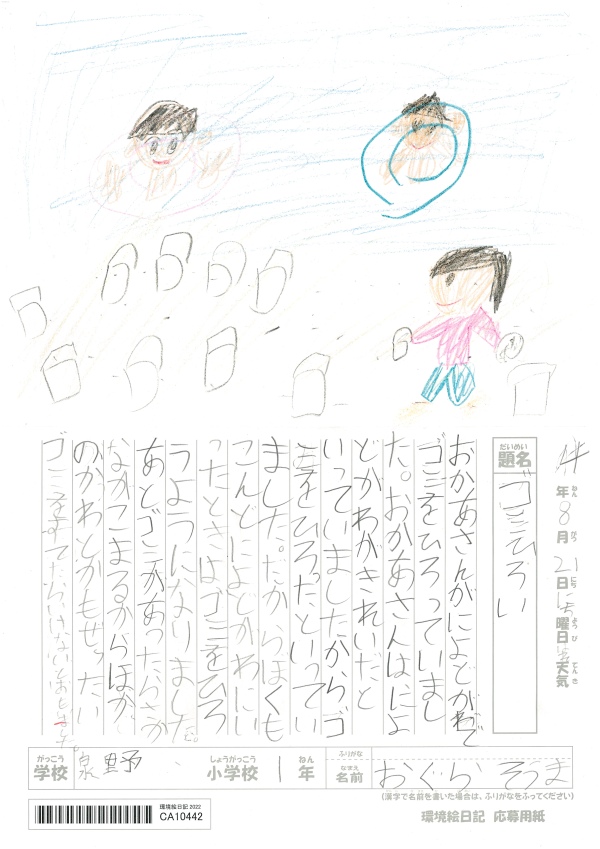 年8月21日にち曜日天気
ねん がつ にち ようび てんき
だいめい
題名 ゴミひろい
おかあさんがによどがわで
ゴミをひろっていまし
た。おかあさんはによ
どかわがきれいだと
いっていましたからゴ
ミをひろったといってい
ました。だからぼくも
こんどによどかわにい
ったときはゴミをひろ
うようになりました。
あとゴミがあったらさか
ながこまるからほか
のかわとかもぜったい
ゴミをすてたらいけないとおもいました。
がっこう しょうがっこう ねん ふりがな
学校 泉野 小学校 1年 なまえ 名前 おぐら そうま
(漢字で名前を書いた場合は、ふりがなをふってください)
環境絵日記 2022
CA10442
環境絵日記 応募用紙